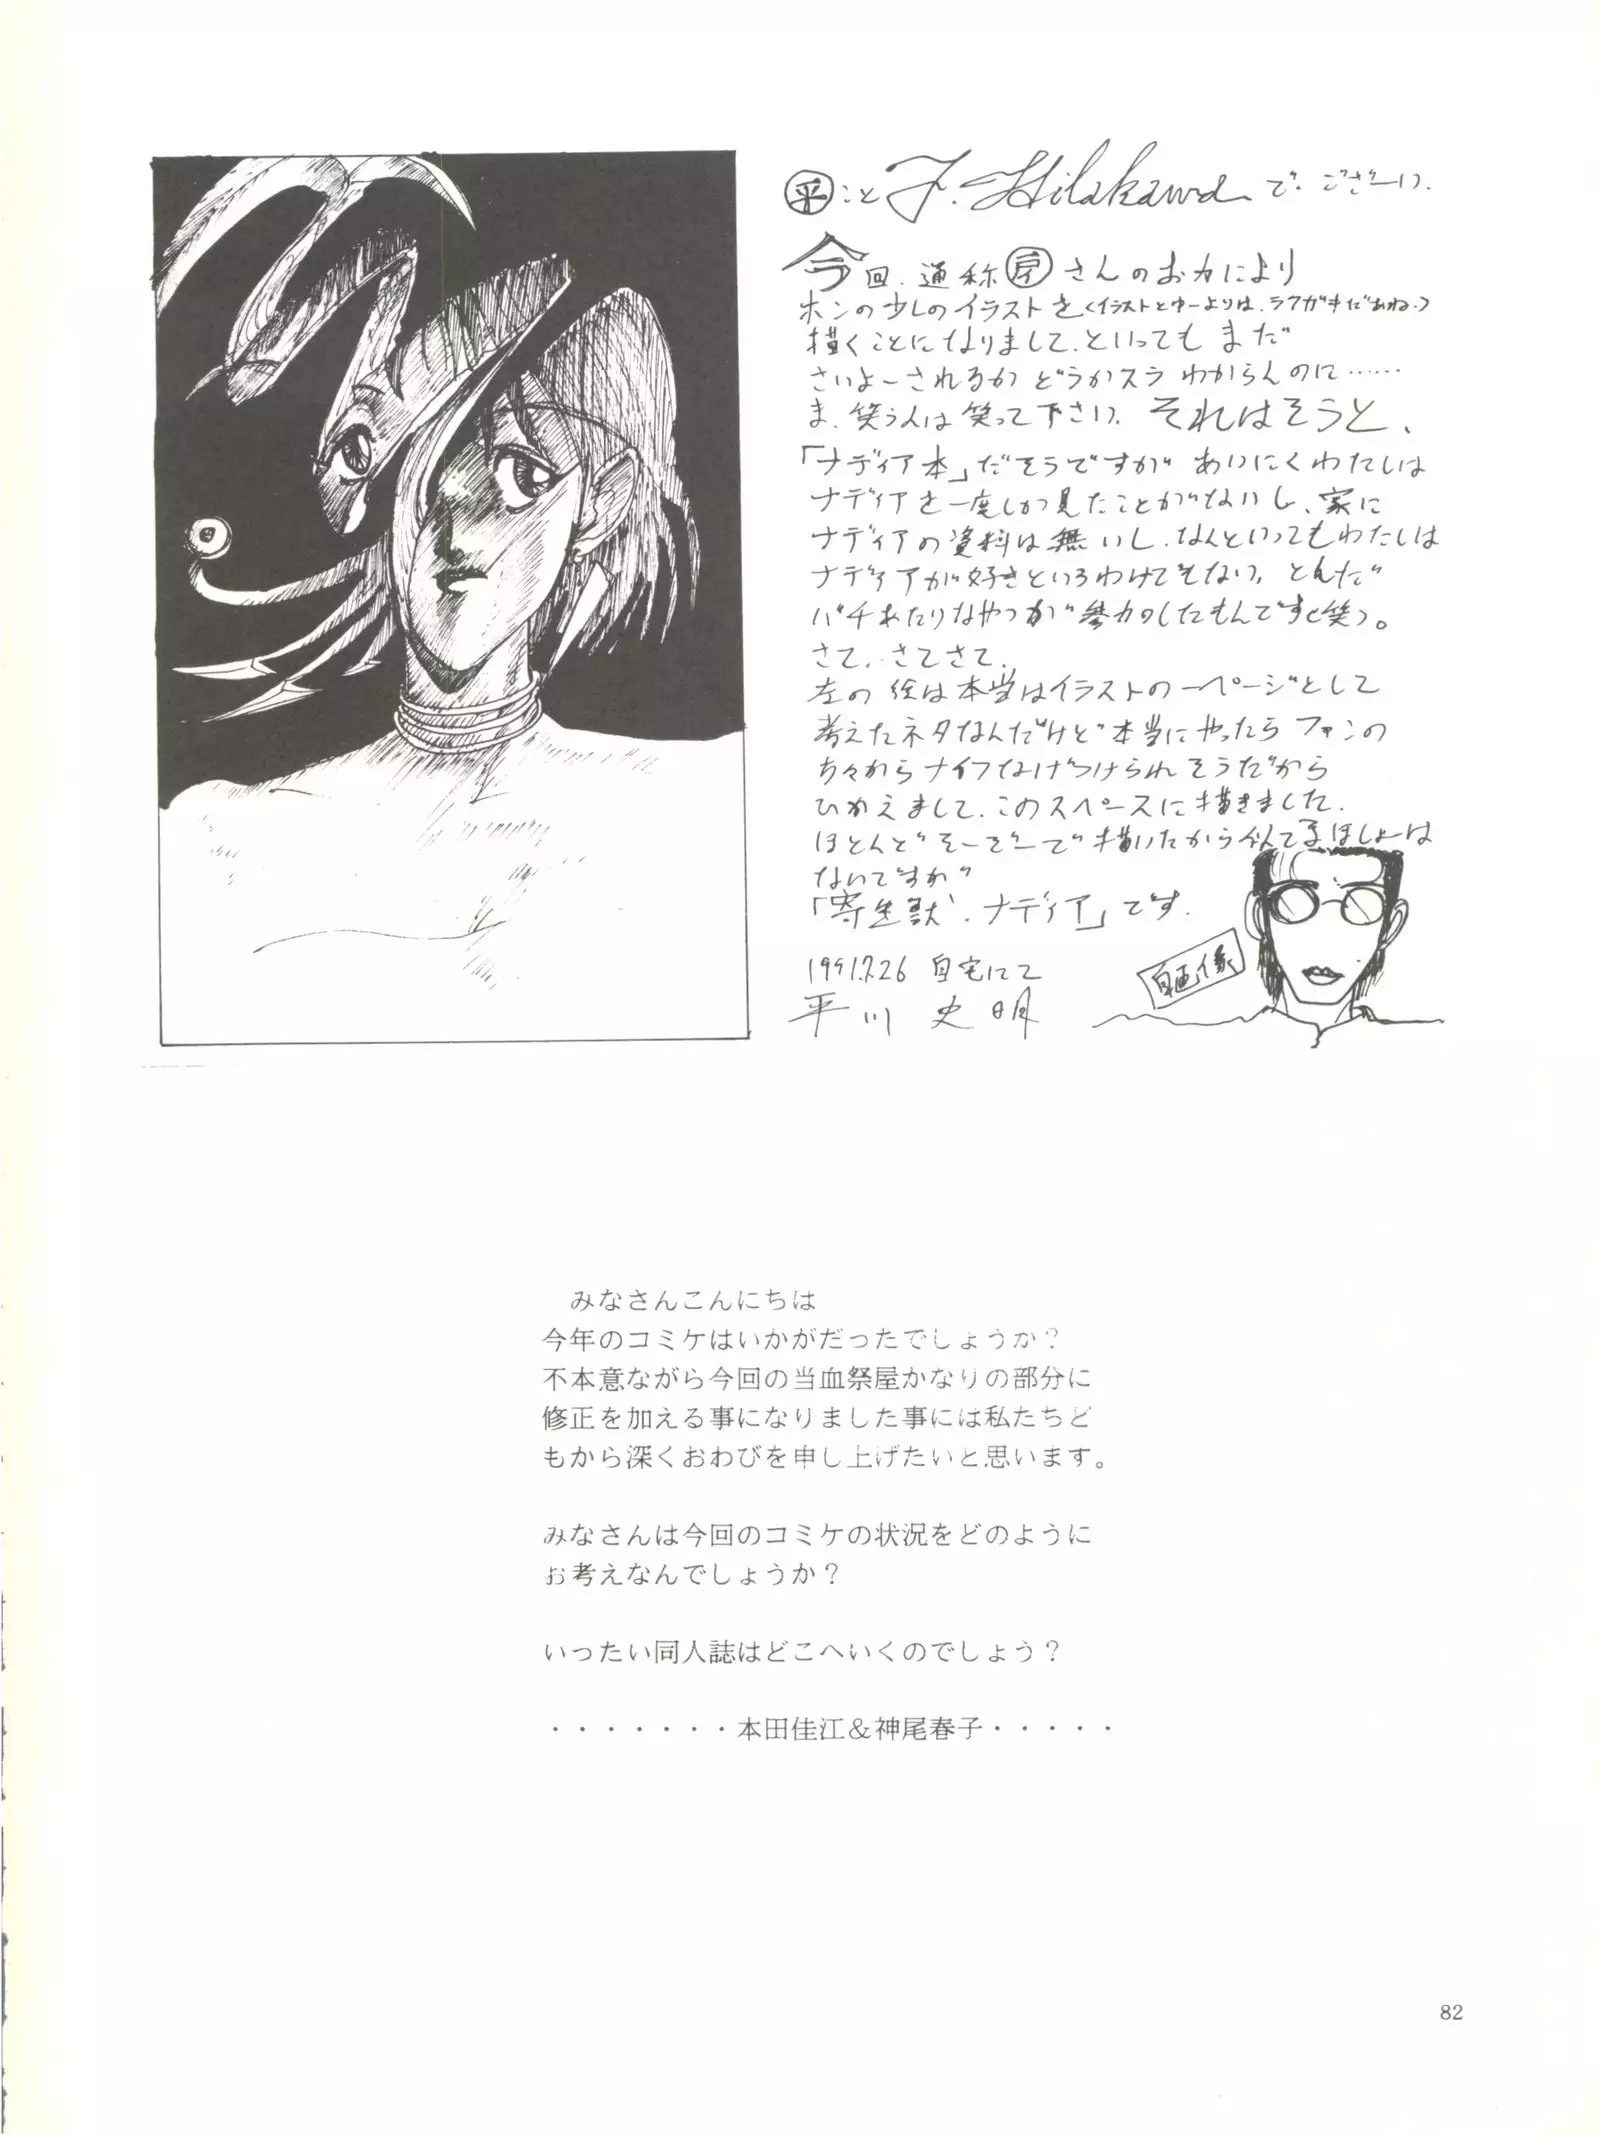 ㊤こと F. Hilakawa でございーい.
今回.通称さんのお力により
ホンの少しのイラストを(イラストとゆーよりは.ラクガキだあね.)
描くことになりまして.といってもまだ
さいよーされるかどうかスラわからんのに……
ま.笑う人は笑って下さい.それはそうと、
「ナディア本」だそうですがあいにくわたしは
ナディアを一度しか見たことがないし、家に
ナディアの資料は無いし.なんといってもわたしは
ナディアが好きというわけでもない.とんだ
バチあたりなやつが参加したもんです(笑)。
さて.さてさて.
左の絵は本当はイラストの一ページとして
考えたネタなんだけど本当にやったらファンの
方々からナイフなげつけられそうだから
ひかえまして.このスペースに描きました.
ほとんどそーぞーで描いたから似てるほしょーは
ないですが
「寄生獣・ナディア」です.
1991.7.26 自宅にて
平川 史明
自画像
みなさんこんにちは
今年のコミケはいかがだったでしょうか?
不本意ながら今回の当血祭屋かなりの部分に
修正を加える事になりました事には私たちど
もから深くおわびを申し上げたいと思います。
みなさんは今回のコミケの状況をどのように
お考えなんでしょうか?
いったい同人誌はどこへいくのでしょう?
・・・・・・・本田佳江＆神尾春子・・・・・
82